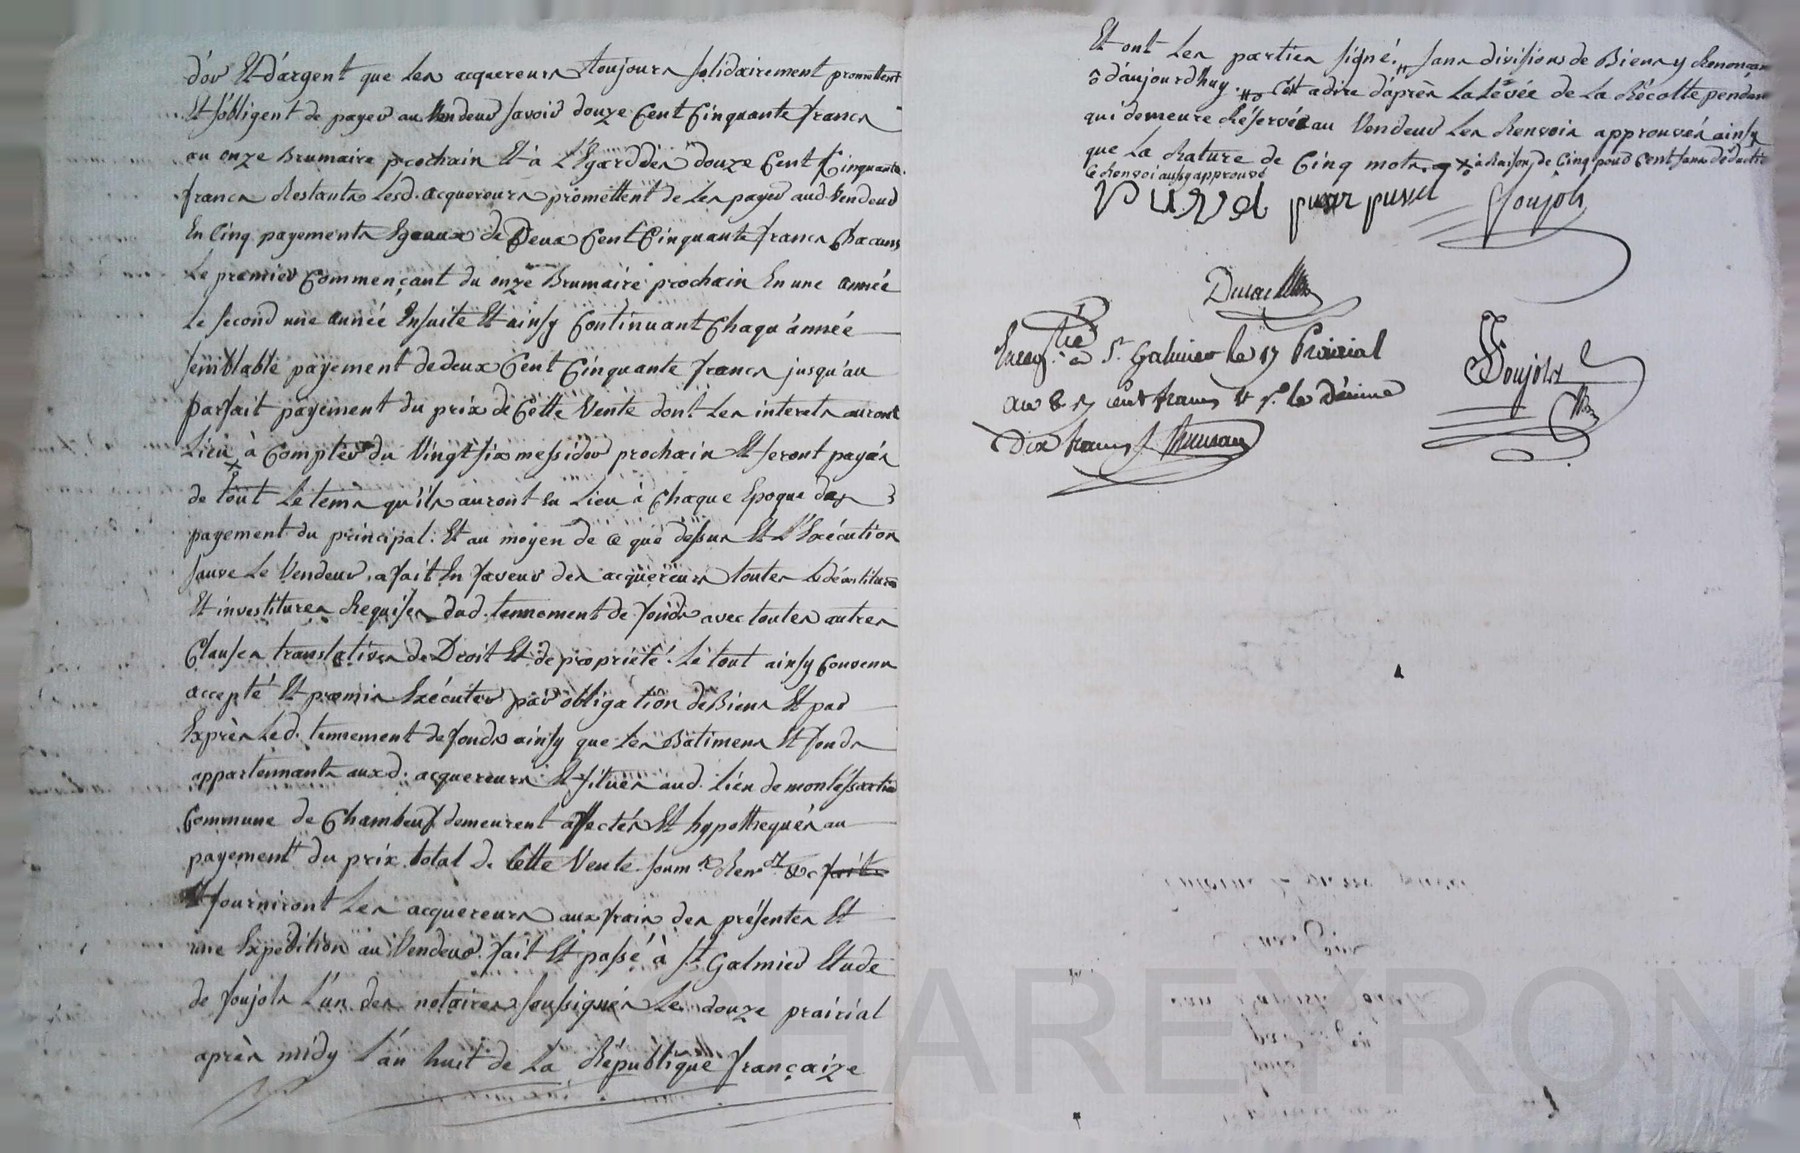 d'or Et D'argent que Les acquereurs toujours solidairement promettent
Et s'obligent de payer au Vendeur savoir douze Cent Cinquante francs
au onze Brumaire prochain Et à L'Egard des douze Cent Cinquante
francs Restants Lesd. acquereurs promettent de Les payer aud. Vendeur
En Cinq payements Egaux de Deux Cent Cinquante francs Chacuns
Le premier Commençant du onze Brumaire prochain En une année
Le second une année Ensuite Et ainsy Continuant Chaqu'année
semblable payement de deux Cent Cinquante francs jusqu'au
parfait payement du prix de Cette Vente dont Les interets auront
Lieu à Compter du Vingt six messidor prochain Et seront payés
de tout Le tems qu'ils auront eu Lieu à Chaque Epoque des
payement du principal. Et au moyen de ce que dessus Et L'Exécution
sauve Le Vendeur, a fait En faveur des acquereurs toutes Les dévestitures
Et investitures Requises dud. tennement de fonds avec toutes autres
Clauses translatives de Droit Et de propriété. Le tout ainsy Convenu
accepté Et promis Exécuter par obligation de Biens Et par
Exprès Led. tennement de fonds ainsy que Les Batimens Et fonds
appartennants auxd. acquereurs Et situés aud. Lieu de
Commune de Chambeuf demeurent affectés Et hypothequés au
payement du prix total de Cette Vente. soum.^s Ren.^on &c faits
Et fourniront Les acquereurs aux frais des présentes Et
une Expédition au Vendeur. fait Et passé à S.^t Galmier Etude
de Soujols L'un des notaires soussignés Le douze prairial
après midy L'an huit de La République française
Et ont Les parties signé. sans divisions de Biens y Renonçans
d'aujourdhuy. C'est adire d'après La Levée de La Récolte pendante
qui demeure Réservée au Vendeur Les Renvois approuvés ainsy
que La Rature de Cinq mots. à Raison de Cinq pour Cent sans déduction
Ce Renvoi aussy approuvé
puvel Soujols
Enreg.^tré à S.^t Galmier le 17 Prairial
an 8 cent francs le décime
Dix francs
Soujols
CHAREYRON